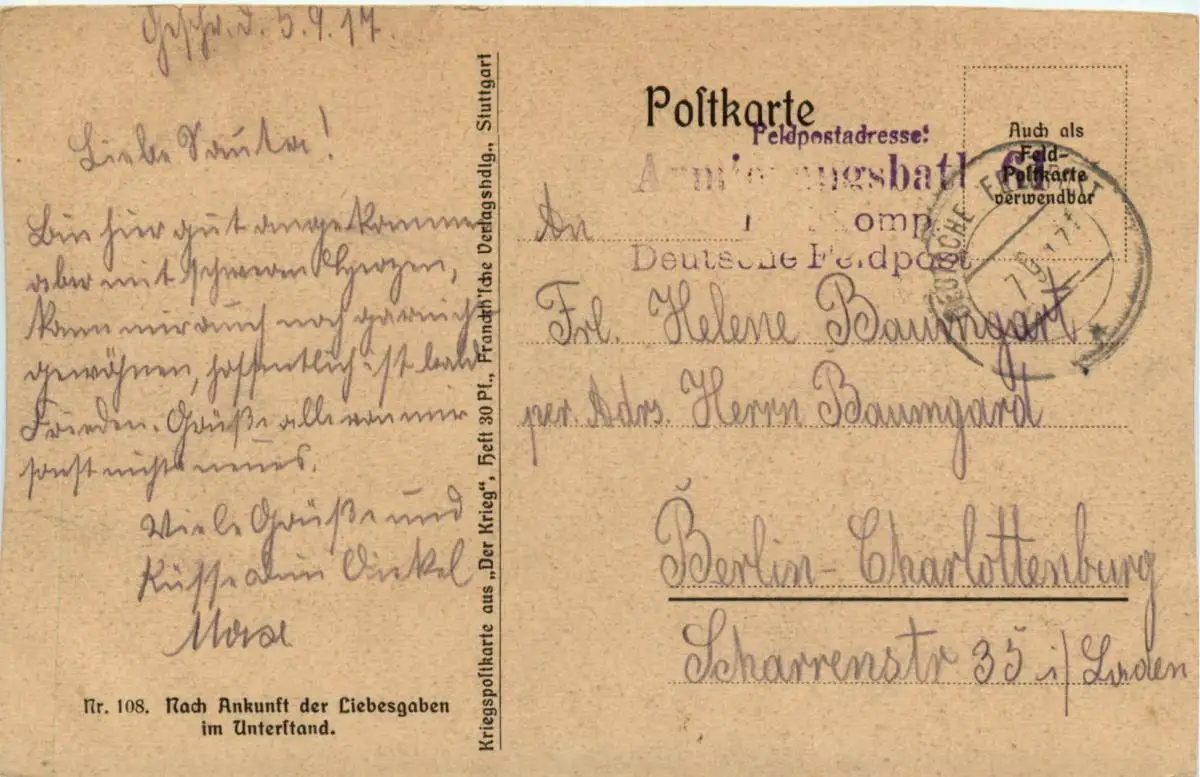 Geschr. d. 5.9.17.
Liebe Tante!
Bin hier gut angekommen
aber mit schweren Herzen,
kann mir auch noch garnicht
gewöhnen, hoffentlich ist bald
Frieden. Grüße alle von mir
sonst nichts neues.
Viele Grüße und
Küsse dein Onkel
Max
Nr. 108. Nach Ankunft der Liebesgaben
im Unterſtand.
Kriegspoſtkarte aus „Der Krieg“, Heft 30 Pf., Franckh'ſche Verlagshdlg., Stuttgart
Poſtkarte
Feldpostadresse:
Armierungsbatl 61
omp
Deutsche Feldpost
Auch als
Feld-
Poſtkarte
verwendbar
DEUTSCHE FELDPOST
An
Frl. Helene Baumgart
per. Adrs. Herrn Baumgard
Berlin-Charlottenburg
Scharrenstr 35 i/ Laden